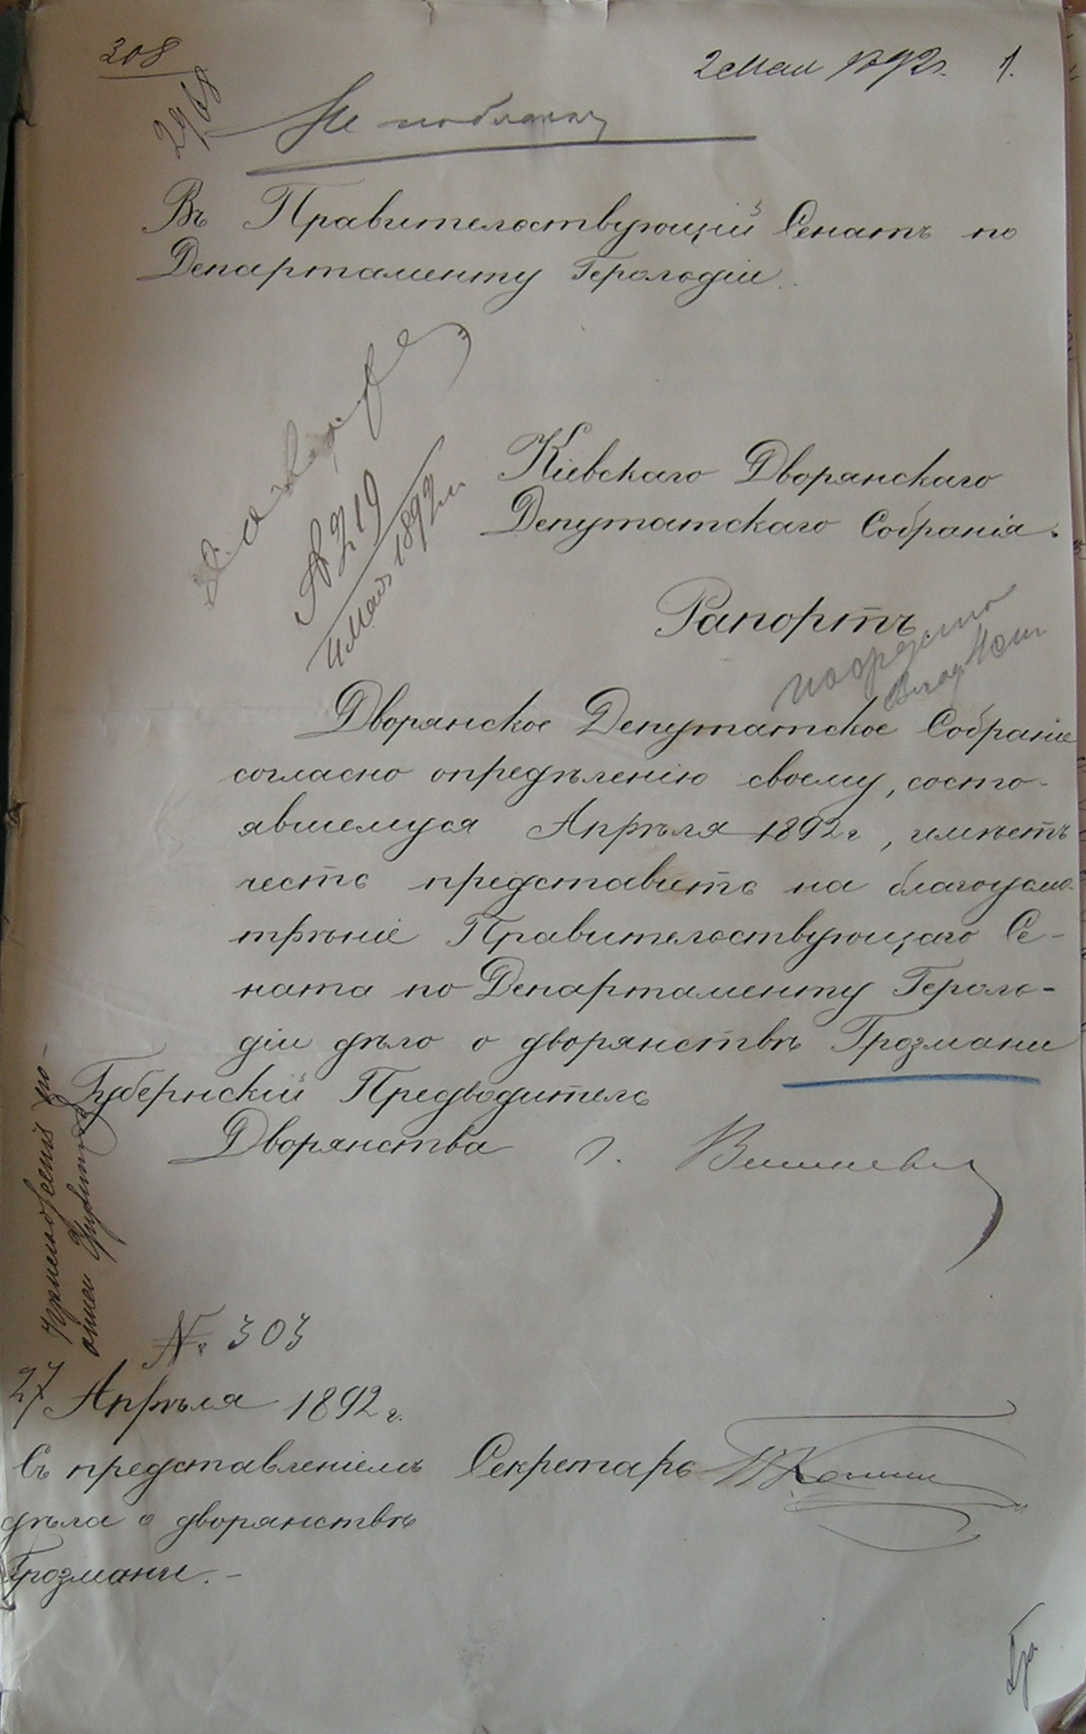 308
2 Мая 1892г. 1.
2968
Не
Въ Правительствующій Сенатъ по
Департаменту Герольдіи.
Кіевскаго Дворянскаго
Депутатскаго Собранія.
№ 219
Мая 1892 г.
Рапортъ
Дворянское Депутатское Собраніе
согласно опредѣленію своему, состо-
явшемуся Апрѣля 1892 г, имѣетъ
честь представить на благоусмо-
трѣніе Правительствующаго Се-
ната по Департаменту Героль-
діи дѣло о дворянствѣ Грозмани
Губернскій Предводитель
Дворянства
№ 303
27 Апрѣля 1892 г.
Съ представленіемъ Секретарь
дѣла о дворянствѣ
Грозмани. -